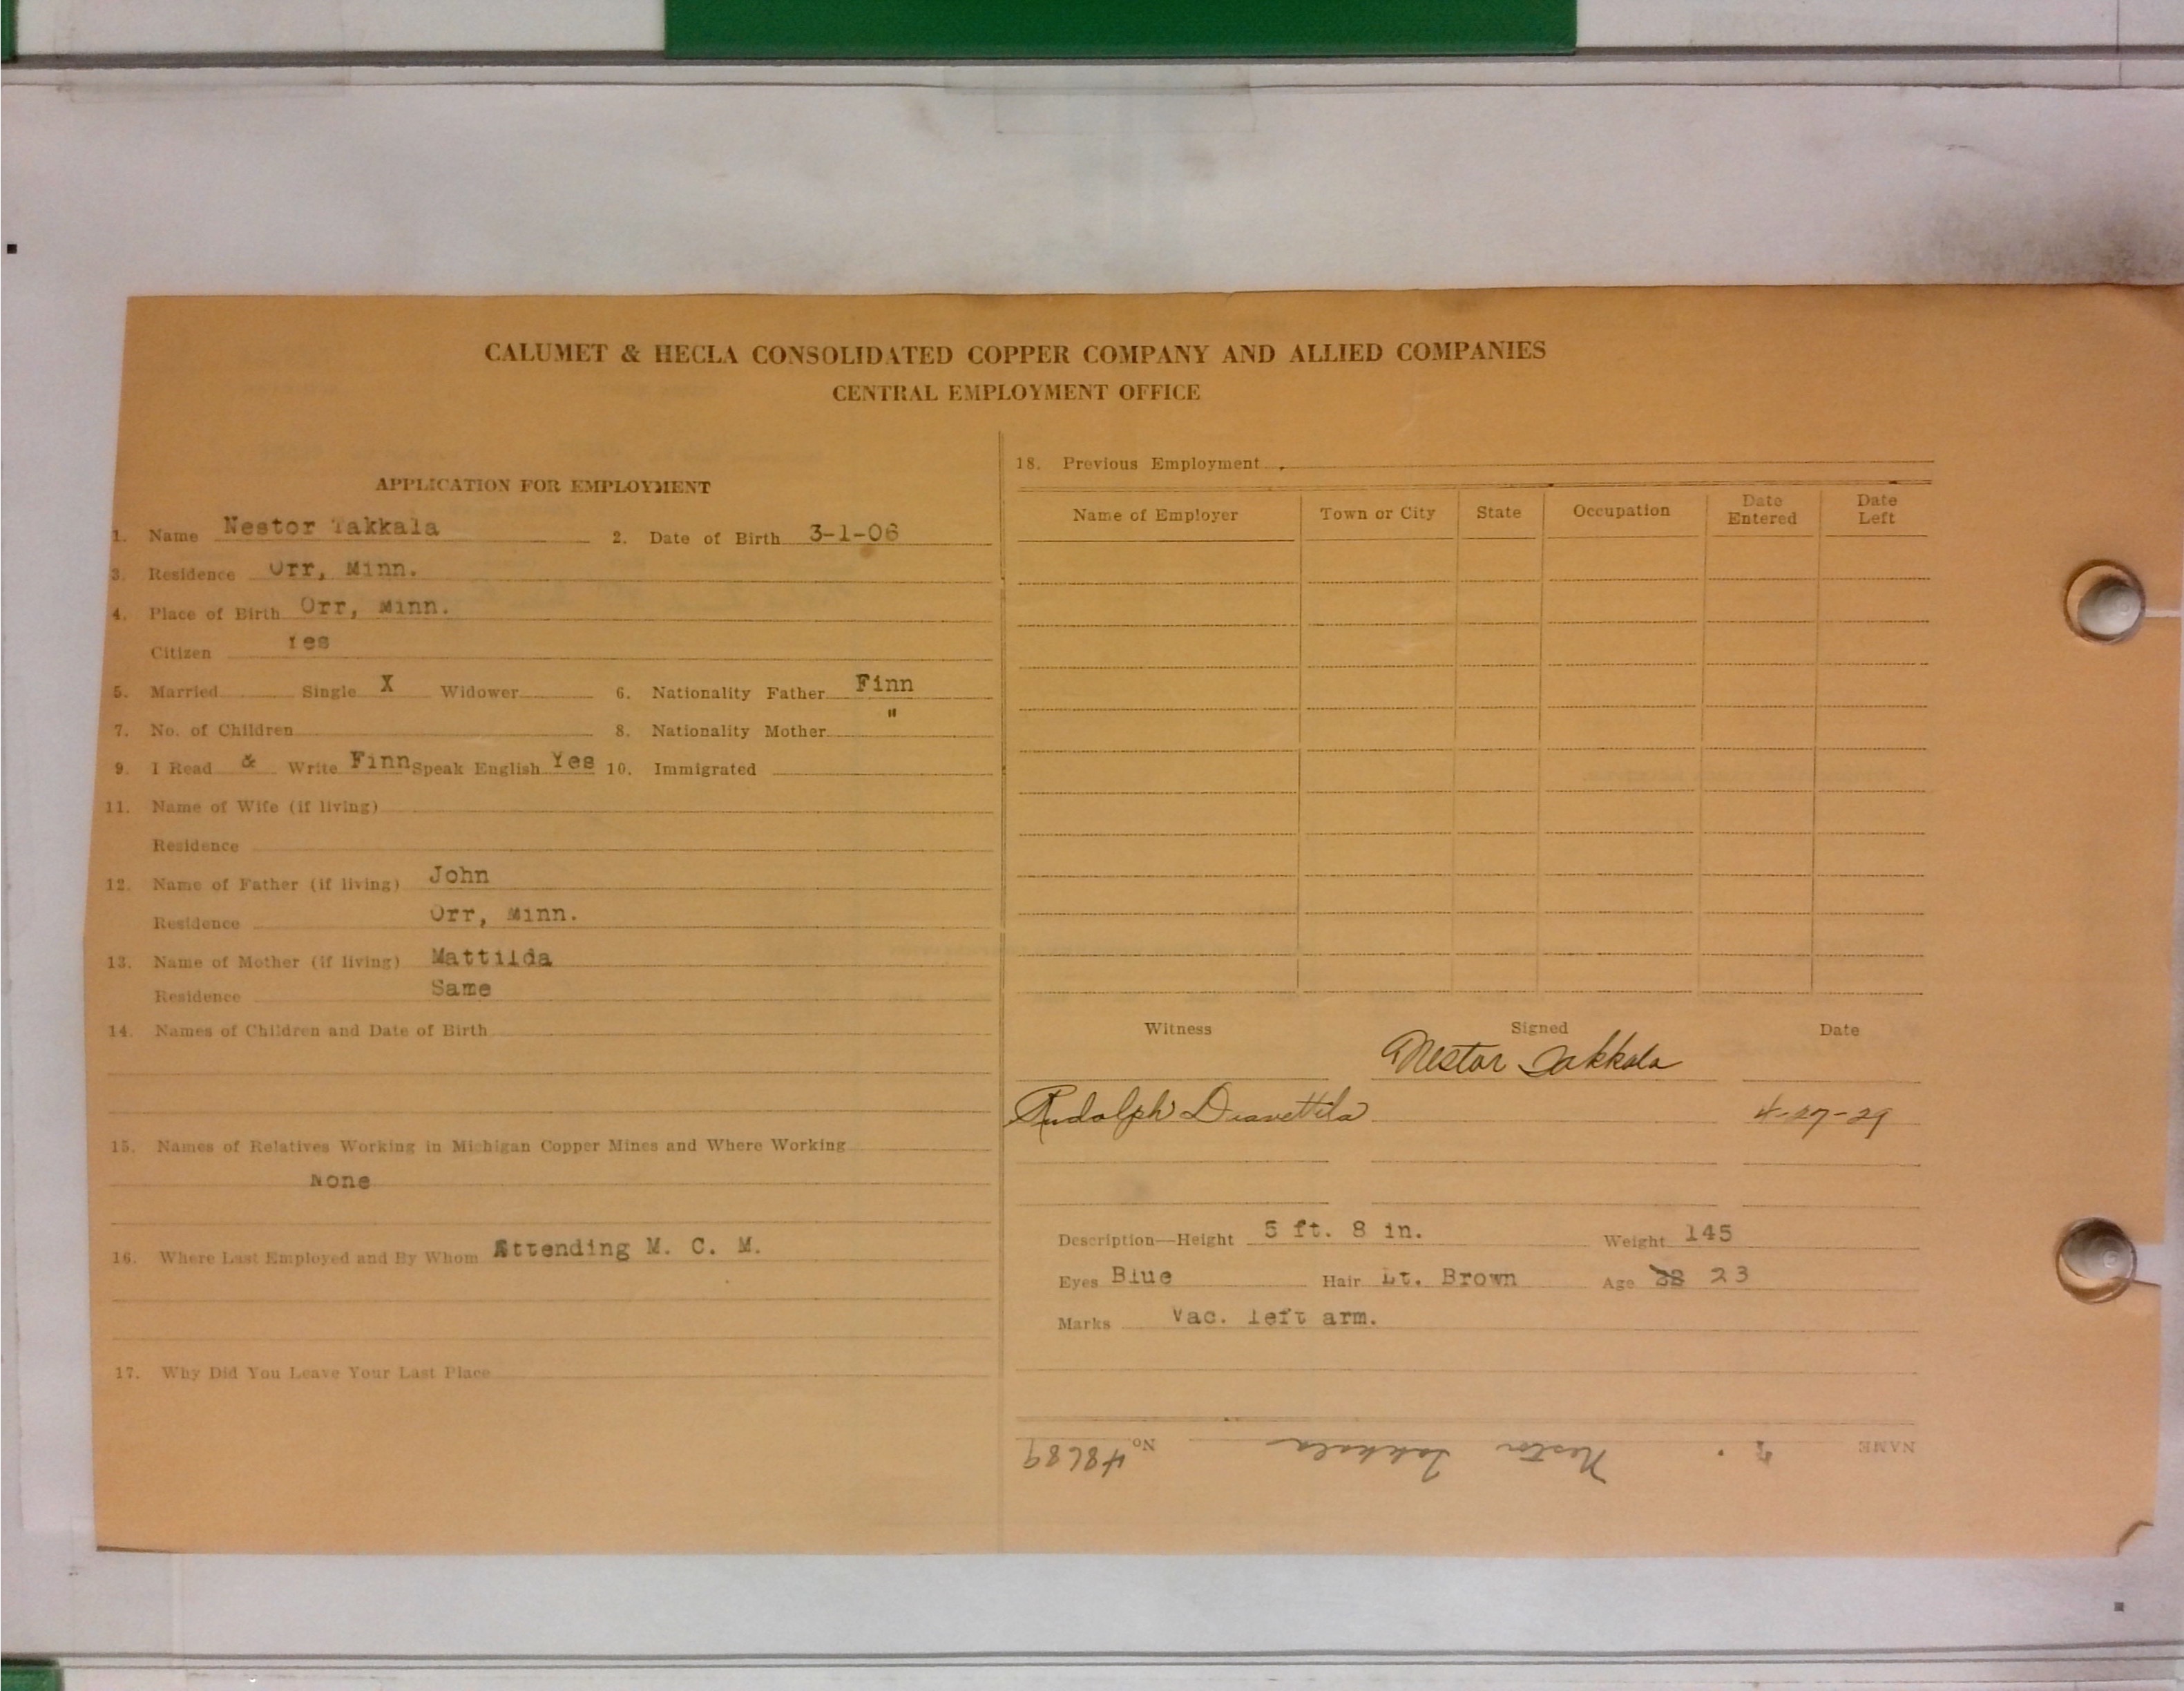 CALUMET & HECLA CONSOLIDATED COPPER COMPANY AND ALLIED COMPANIES
CENTRAL EMPLOYMENT OFFICE
APPLICATION FOR EMPLOYMENT
1. Name Nestor Takkala 2. Date of Birth 3-1-06
3. Residence Orr, Minn.
4. Place of Birth Orr, Minn.
Citizen Yes
5. Married Single X Widower 6. Nationality Father Finn
7. No. of Children 8. Nationality Mother "
9. I Read & Write Finn Speak English Yes 10. Immigrated
11. Name of Wife (if living)
Residence
12. Name of Father (if living) John
Residence Orr, Minn.
13. Name of Mother (if living) Mattilda
Residence Same
14. Names of Children and Date of Birth
15. Names of Relatives Working in Michigan Copper Mines and Where Working
None
16. Where Last Employed and By Whom Attending M. C. M.
17. Why Did You Leave Your Last Place
18. Previous Employment
Name of Employer Town or City State Occupation Date Entered Date Left
Witness Signed Date
Nestor Takkala
Rudolph 4-27-29
Description—Height 5 ft. 8 in. Weight 145
Eyes Blue Hair Lt. Brown Age 28 23
Marks Vac. left arm.
NAME Nestor Takkala No. 48689